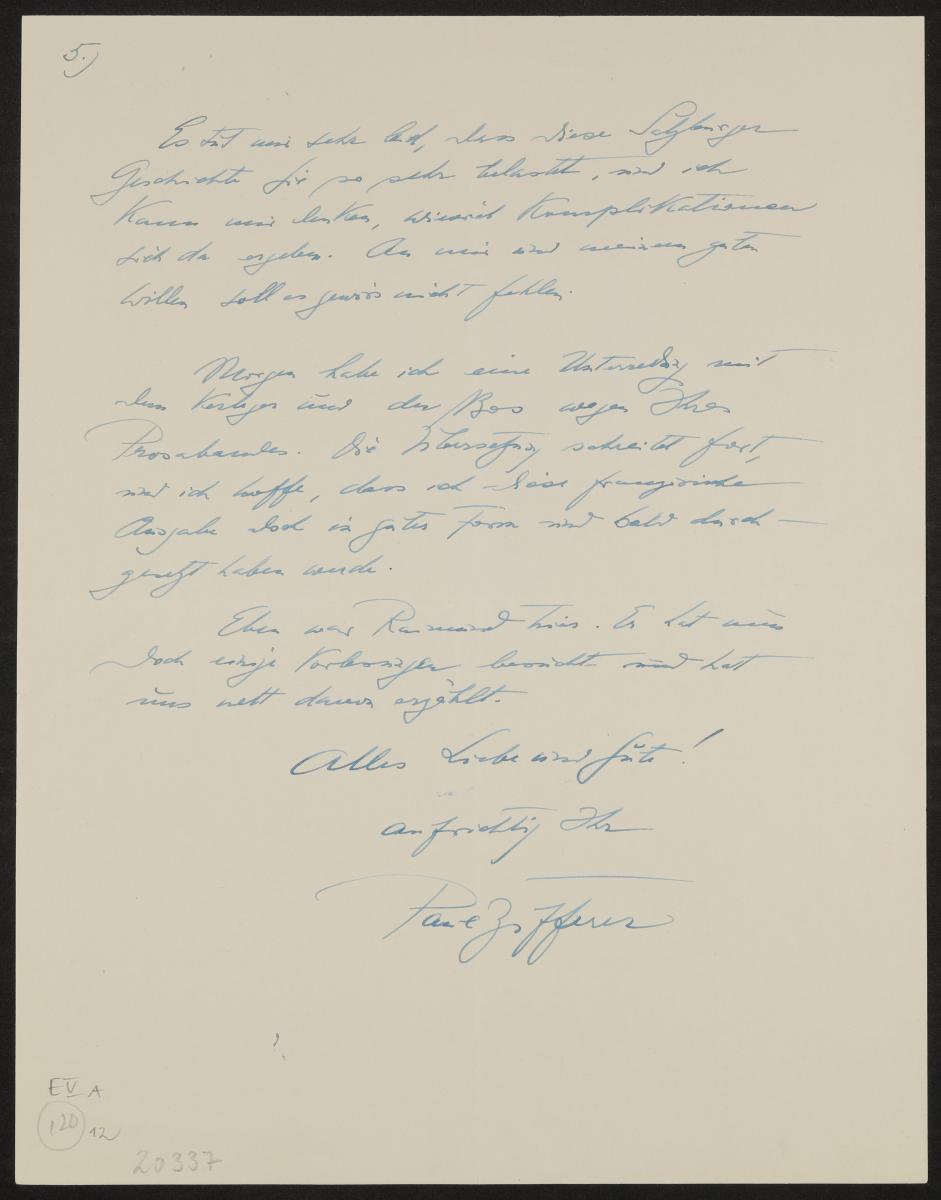 5.)
Es tut mir sehr leid, dass diese Salzburger
Geschichte Sie so sehr belastet, und ich
kann mir denken, wieviel Komplikationen
sich da ergeben. An mir und meinem guten
Willen soll es gewiss nicht fehlen.
Morgen habe ich eine Unterredung mit
dem Verleger und der Bos wegen Ihres
Prosabandes. Die Übersetzung schreitet fort,
und ich hoffe, dass ich diese französische
Ausgabe doch in guter Form und bald durch-
gesetzt haben werde.
Eben war Raimund hier. Er hat nun
doch einige Vorlesungen besucht und hat
uns nett davon erzählt.
Alles Liebe und Gute!
aufrichtig Ihr
Paul Zifferer
EV A
120 12
20337